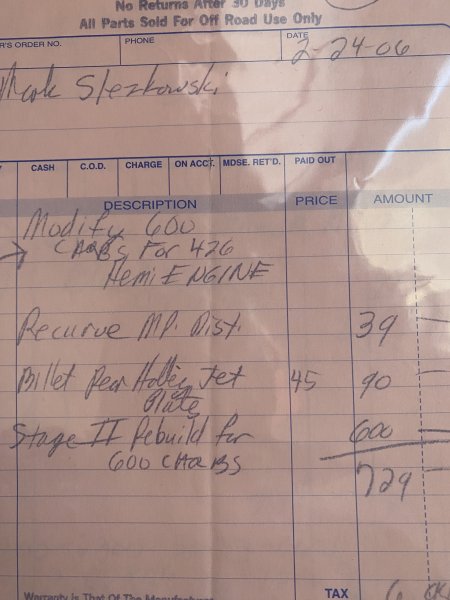 No Returns After 30 Days
All Parts Sold For Off Road Use Only
R'S ORDER NO. PHONE DATE 2-24-06
Mark Slezkowski
CASH C.O.D. CHARGE ON ACCT. MDSE. RET'D. PAID OUT
DESCRIPTION PRICE AMOUNT
Modify 600
CARBS For 426
Hemi ENGINE
Recurve MP. Dist. 39 —
Billet Rear Holley Jet 45 90 —
Plate
Stage II Rebuild for 600 —
600 CARBS
729 —
Warranty Is That Of The Manufacturer
TAX 6